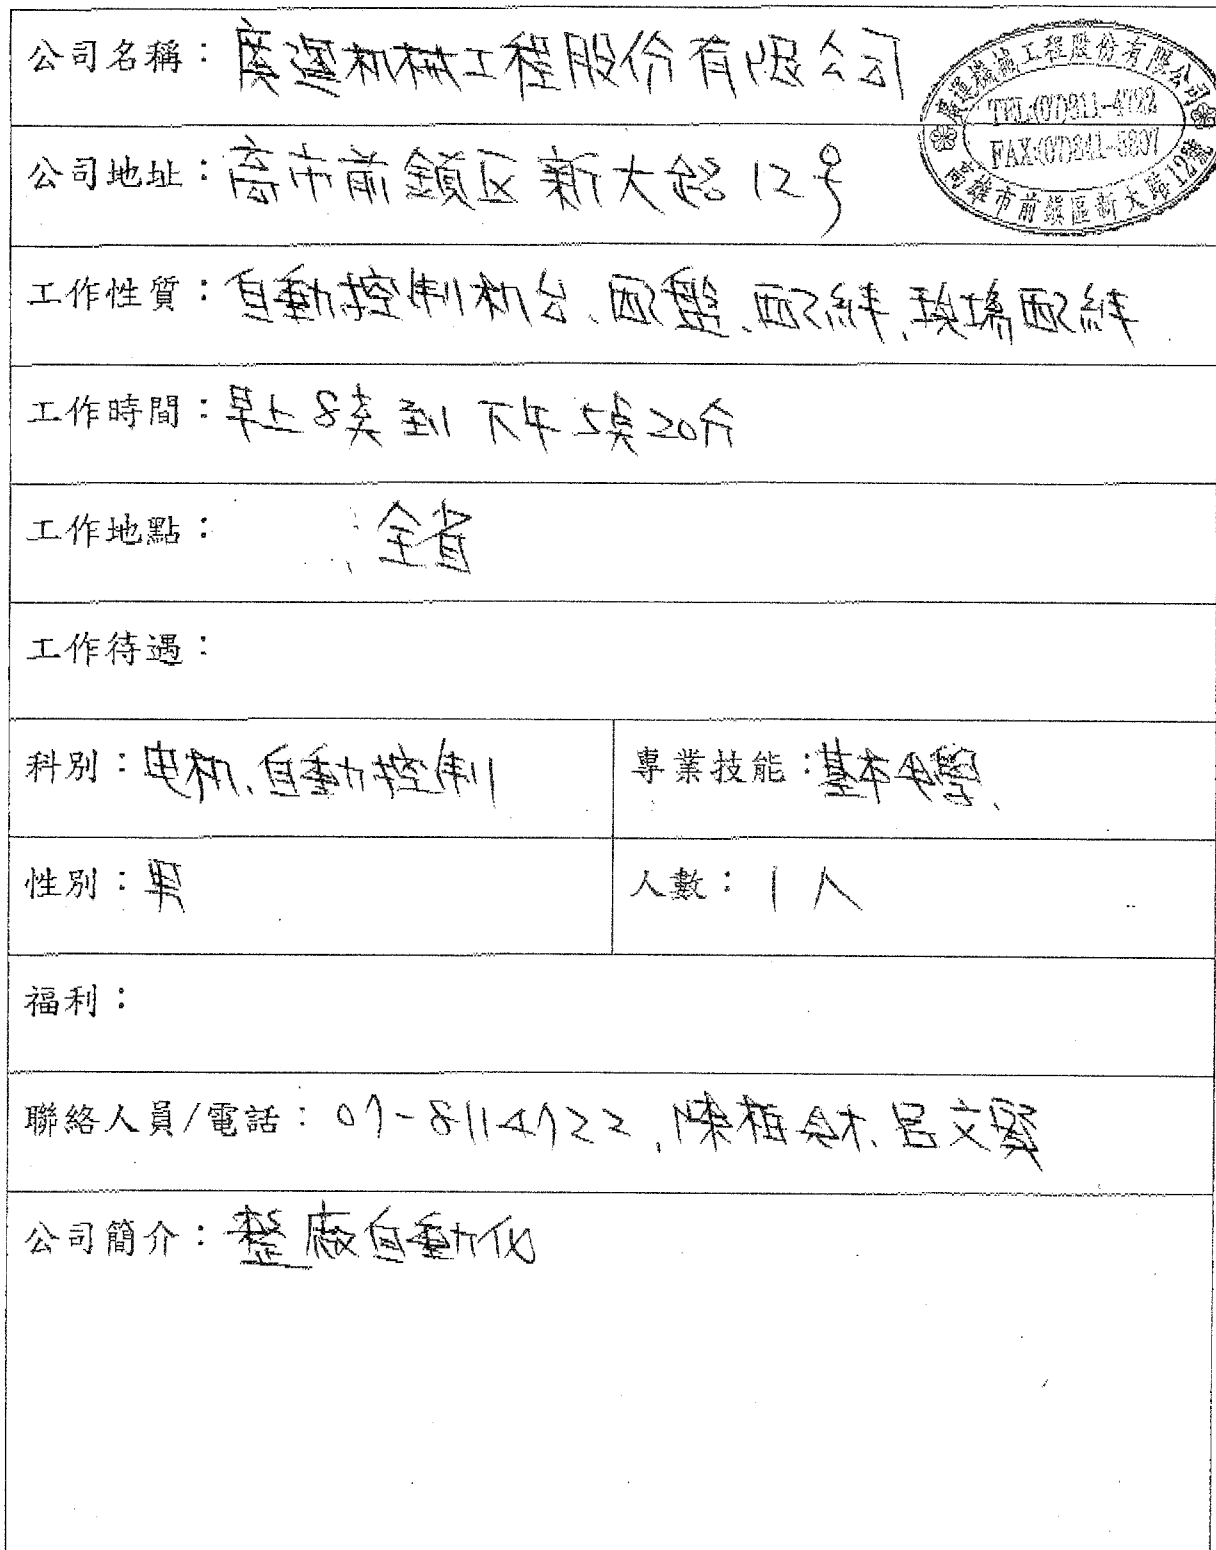 公司名稱：廣運机械工程股份有限公司
廣運機械工程股份有限公司
TEL:(07)811-4722
FAX:(07)841-5807
高雄市前鎮區新大路12號
公司地址：高市前鎮区新大路12号
工作性質：自動控制机台、配盤、配線、現場配線
工作時間：早上8点到下午5点20分
工作地點：全省
工作待遇：
科別：电机、自動控制
專業技能：基本电學、
性別：男
人數：1人
福利：
聯絡人員/電話：07-8114722、陳 呂文賢
公司簡介：整廠自動化